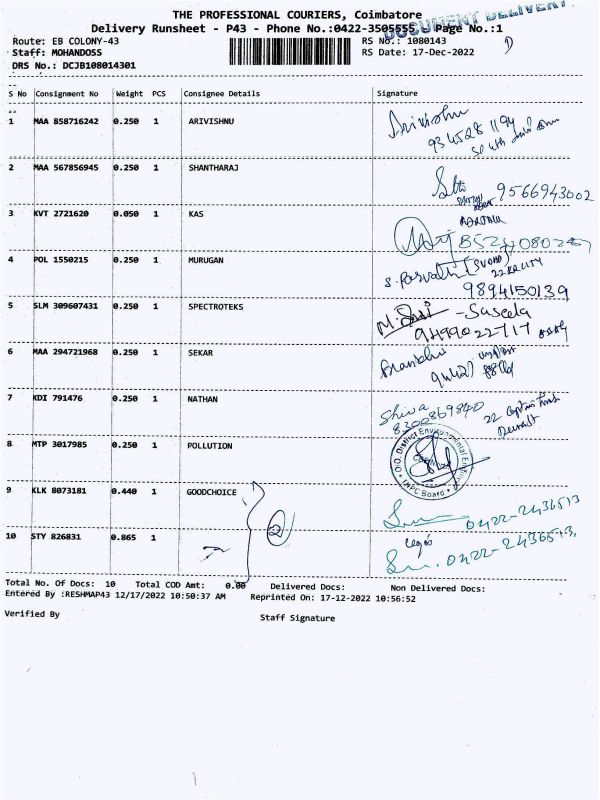 THE PROFESSIONAL COURIERS, Coimbatore
DOCUMENT DELIVERY
Delivery Runsheet - P43 - Phone No.:0422-3505555 Page No.:1
Route: EB COLONY-43 RS No.: 1080143
Staff: MOHANDOSS RS Date: 17-Dec-2022
DRS No.: DCJB108014301
S No Consignment No Weight PCS Consignee Details Signature
1 MAA 858716242 0.250 1 ARIVISHNU Arivishnu
2 MAA 567856945 0.250 1 SHANTHARAJ
9566943002
3 KVT 2721620 0.050 1 KAS
4 POL 1550215 0.250 1 MURUGAN
9894150139
5 SLM 309607431 0.250 1 SPECTROTEKS - Suseela
9499022717
6 MAA 294721968 0.250 1 SEKAR
7 KDI 791476 0.250 1 NATHAN Shiva
8300869840
8 MTP 3017985 0.250 1 POLLUTION
O/O. District Environmental
TNPC Board
9 KLK 8073181 0.440 1 GOODCHOICE
0422-2436513
10 STY 826831 0.865 1
0422-2436513
Total No. Of Docs: 10 Total COD Amt: 0.00 Delivered Docs: Non Delivered Docs:
Entered By :RESHMAP43 12/17/2022 10:50:37 AM Reprinted On: 17-12-2022 10:56:52
Verified By Staff Signature